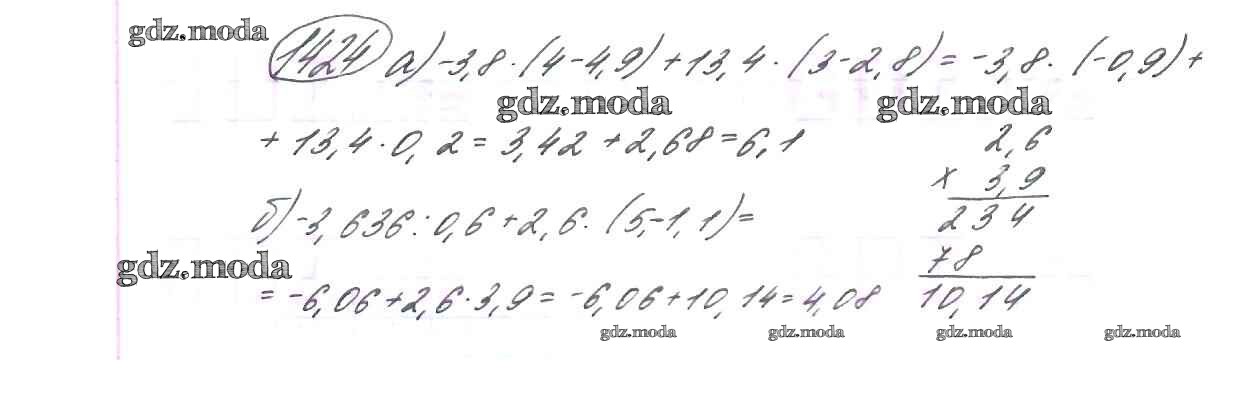 gdz.moda
1424 а) -3,8 · (4-4,9) + 13,4 · (3-2,8) = -3,8 · (-0,9) +
gdz.moda gdz.moda
+ 13,4 · 0,2 = 3,42 + 2,68 = 6,1
2,6
× 3,9
234
78
10,14
б) -3,636 : 0,6 + 2,6 · (5-1,1) =
gdz.moda
= -6,06 + 2,6 · 3,9 = -6,06 + 10,14 = 4,08
gdz.moda gdz.moda gdz.moda gdz.moda